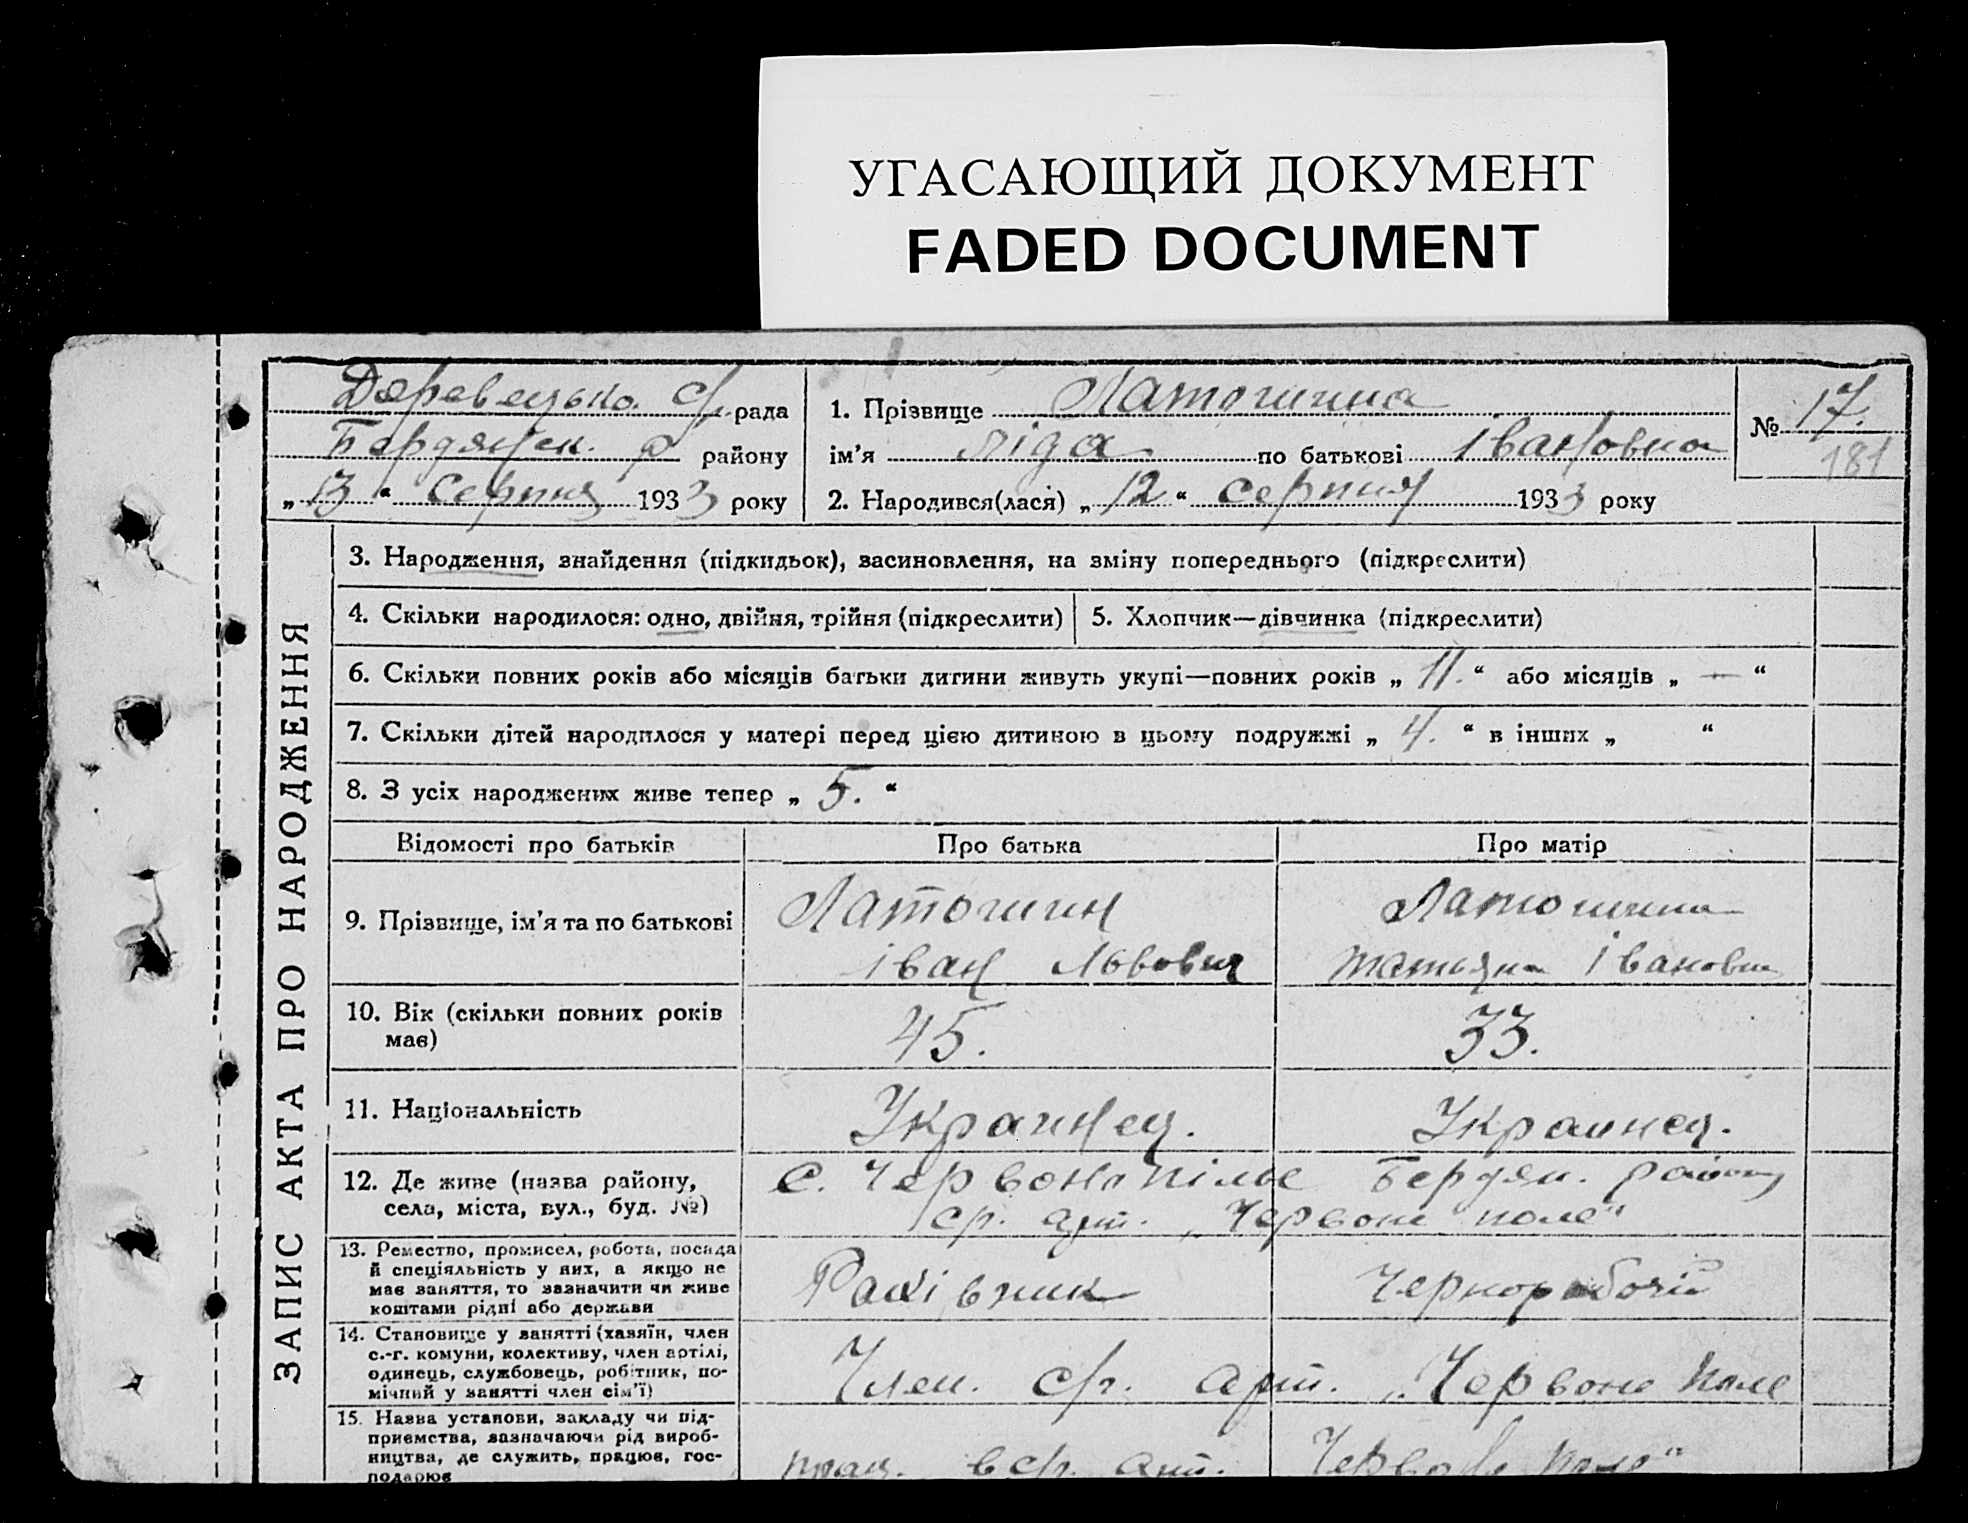 УГАСАЮЩИЙ ДОКУМЕНТ
FADED DOCUMENT
рада
Бердянськ. р району
„ 13 “ серпня 1933 року
1. Прізвище Латошина
ім'я Ліда по батькові Івановна
2. Народився(лася) „ 12 “ серпня 1933 року
№ 17.
181
ЗАПИС АКТА ПРО НАРОДЖЕННЯ
3. Народження, знайдення (підкидьок), засиновлення, на зміну попереднього (підкреслити)
4. Скільки народилося: одно, двійня, трійня (підкреслити)
5. Хлопчик—дівчинка (підкреслити)
6. Скільки повних років або місяців батьки дитини живуть укупі—повних років „ 11. “ або місяців „ — “
7. Скільки дітей народилося у матері перед цією дитиною в цьому подружжі „ 4. “ в інших „ “
8. З усіх народжених живе тепер „ 5. “
Відомості про батьків
Про батька
Про матір
9. Прізвище, ім'я та по батькові
Латошин
Іван Львович
Латошина
Татьяна Івановна
10. Вік (скільки повних років
має)
45.
33.
11. Національність
Украинец.
Украинец.
12. Де живе (назва району,
села, міста, вул., буд. №)
с. Червоно пілье Бердян. району
ср. арт. „Червоне поле“
13. Ремество, промисел, робота, посада
й спеціяльність у них, а якщо не
має заняття, то зазначити чи живе
коштами рідні або держави
Чернорабочій
14. Становище у занятті (хазяїн, член
с.-г. комуни, колективу, член артілі,
одинець, службовець, робітник, по-
мічний у занятті член сім'ї)
Член. с/г. арт. „Червоне поле
15. Назва установи, закладу чи під-
приємства, зазначаючи рід вироб-
ництва, де служить, працює, гос-
подарює
прац. в с/г. арт. Червоне поле“